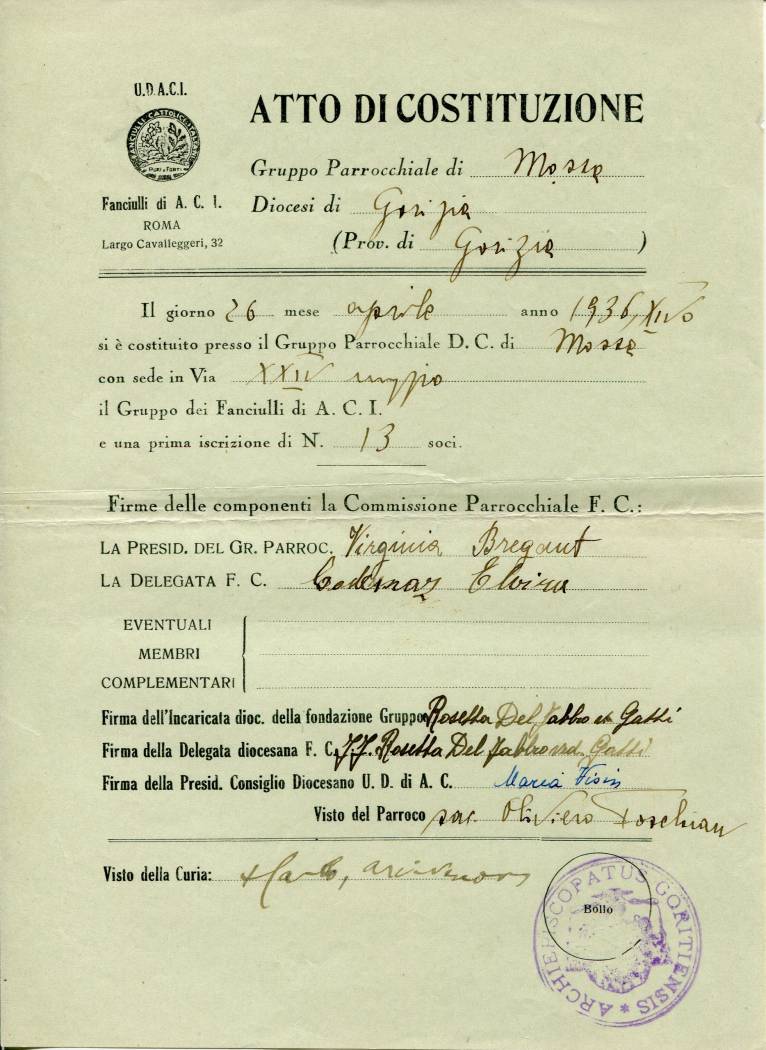 U.D.A.C.I.
ATTO DI COSTITUZIONE
FANCIULLI CATTOLICI
PURI E FORTI
Gruppo Parrocchiale di Mossa
Fanciulli di A. C. I.
ROMA
Largo Cavalleggeri, 32
Diocesi di Gorizia
(Prov. di Gorizia )
Il giorno 26 mese aprile anno 1936, XIVo
si è costituito presso il Gruppo Parrocchiale D. C. di Mossa
con sede in Via XXIV maggio
il Gruppo dei Fanciulli di A. C. I.
e una prima iscrizione di N. 13 soci.
Firme delle componenti la Commissione Parrocchiale F. C.:
LA PRESID. DEL GR. PARROC. Virginia Bregant
LA DELEGATA F. C. Elvira
EVENTUALI
MEMBRI
COMPLEMENTARI
Firma dell'Incaricata dioc. della fondazione Gruppo Rosetta Del Fabbro Gatti
Firma della Delegata diocesana F. C. Rosetta Del Fabbro Gatti
Firma della Presid. Consiglio Diocesano U. D. di A. C. Maria
Visto del Parroco sac. Oliviero
Visto della Curia:
Bollo
ARCHIEPISCOPATUS GORITIENSIS *